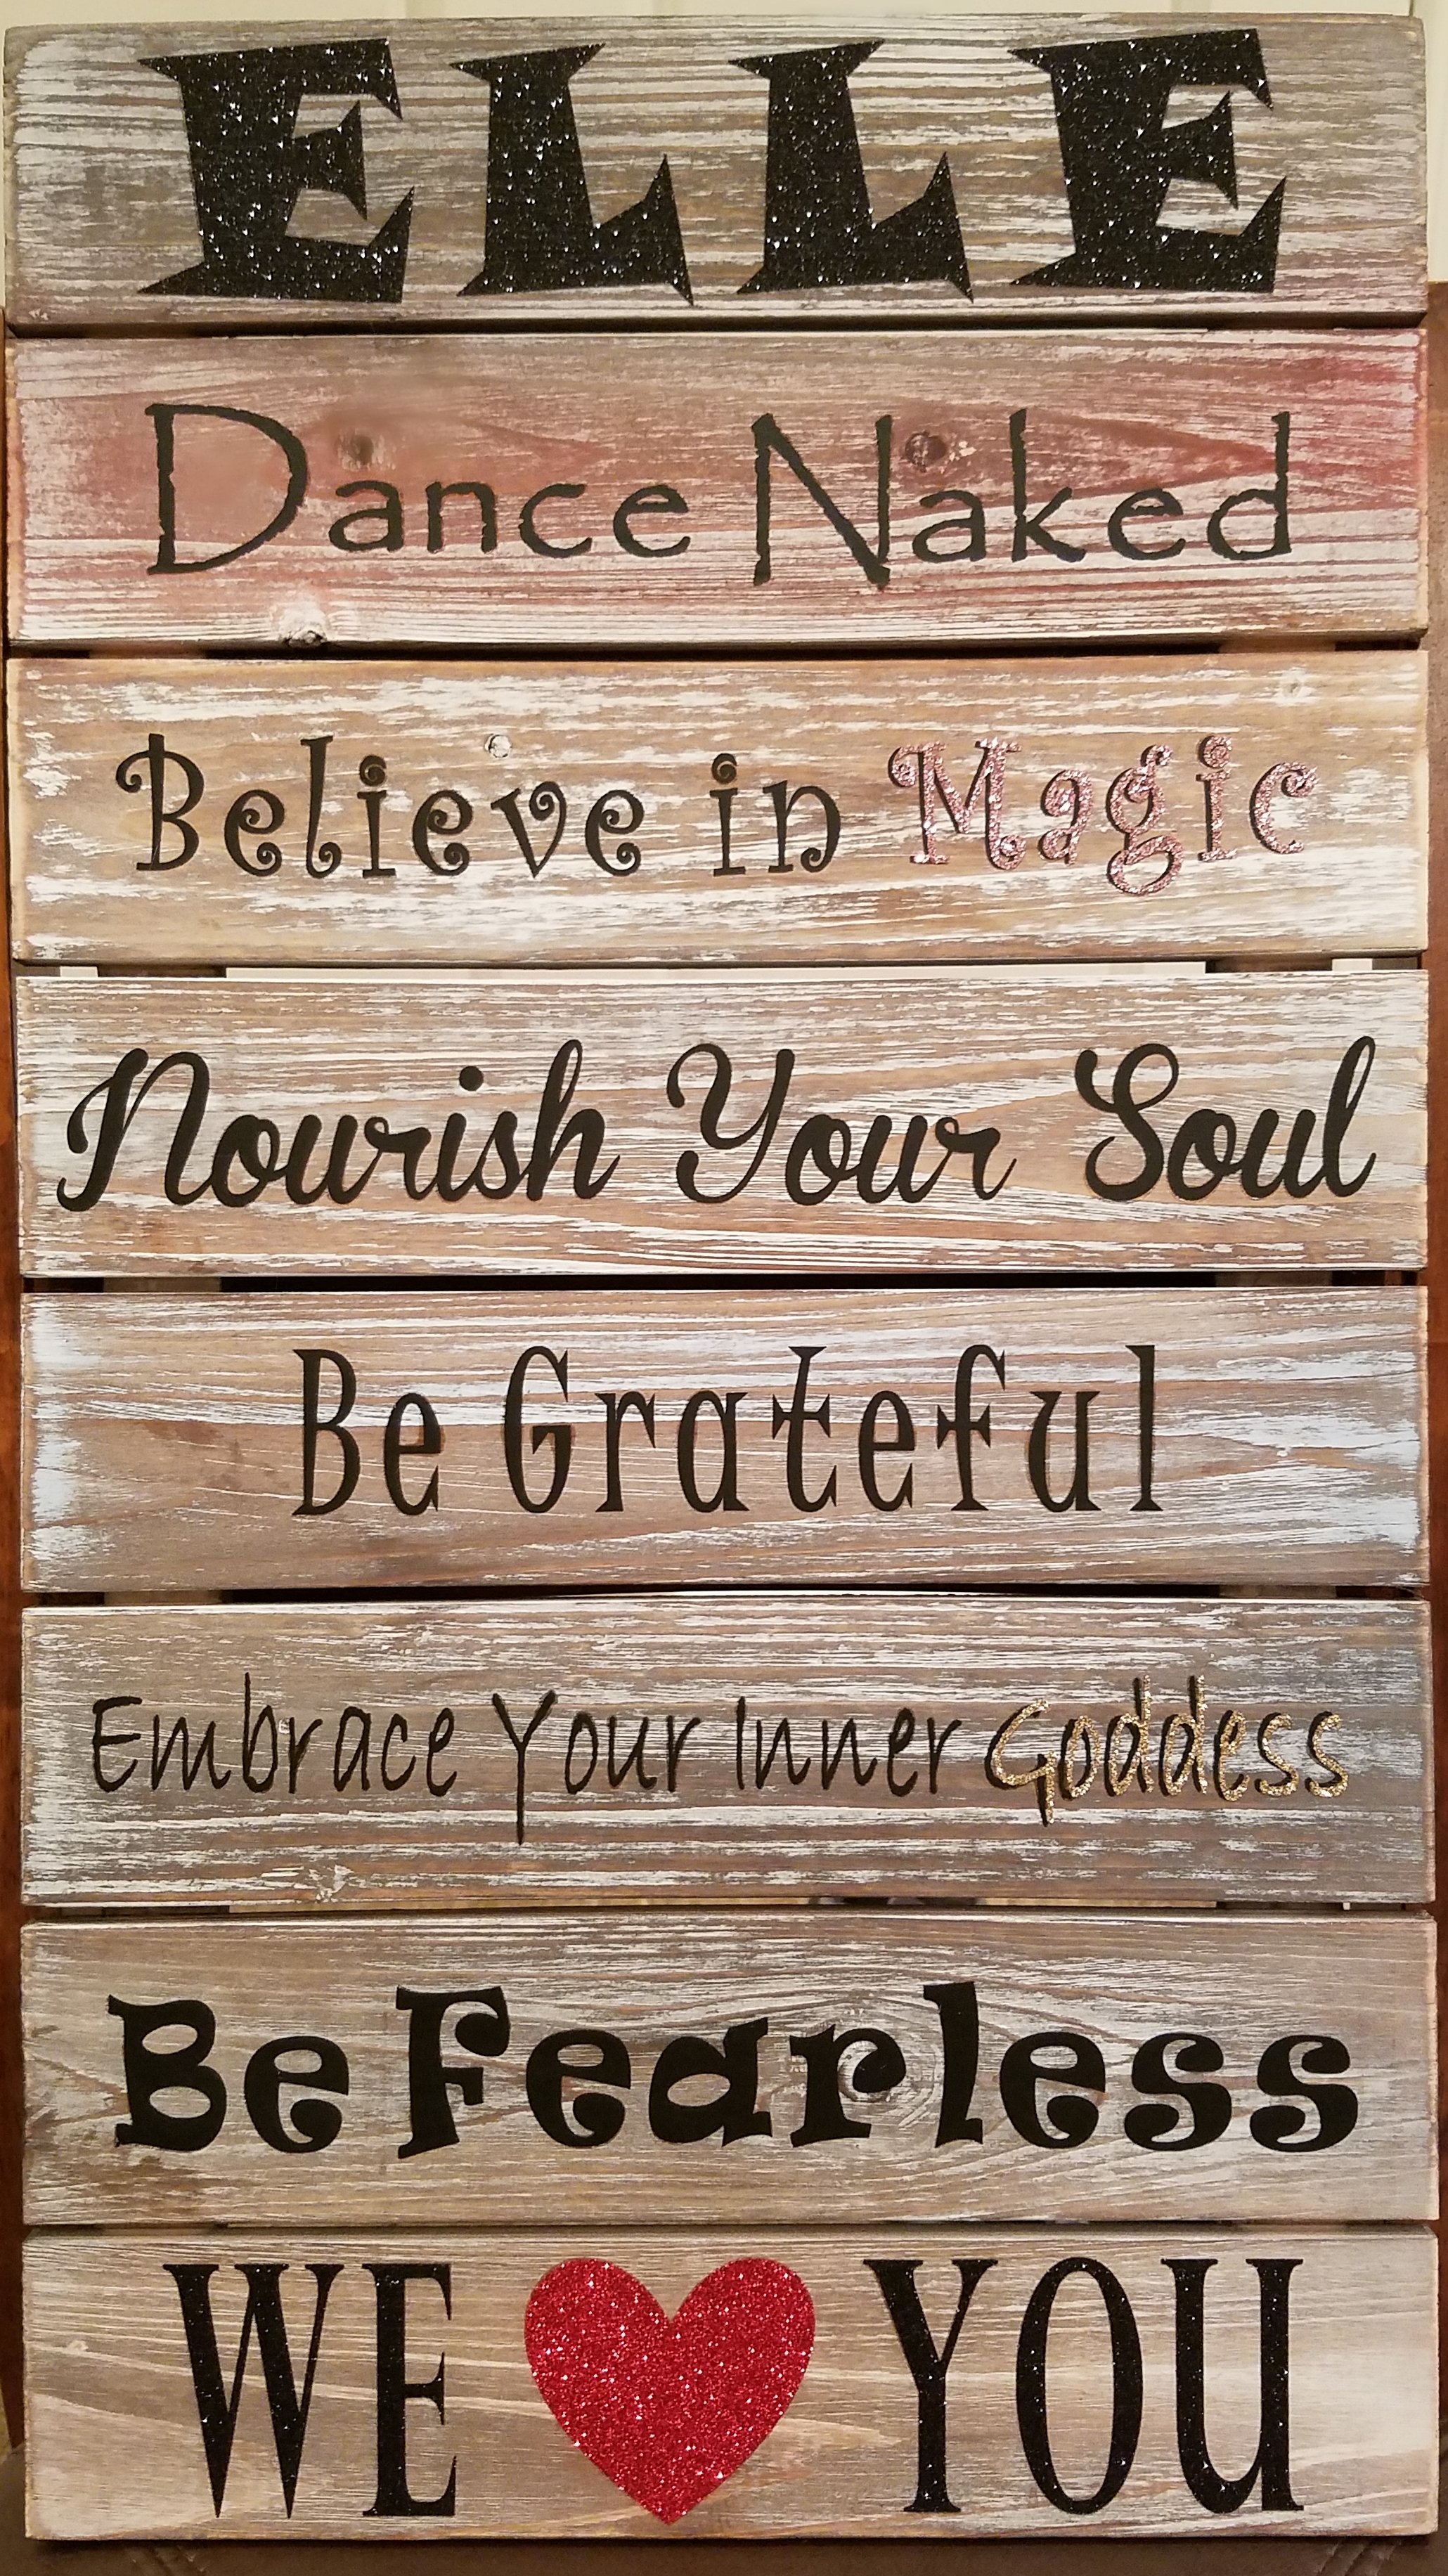 ELLE
Dance Naked
Believe in Magic
Nourish Your Soul
Be Grateful
Embrace Your Inner Goddess
Be Fearless
WE ❤ YOU